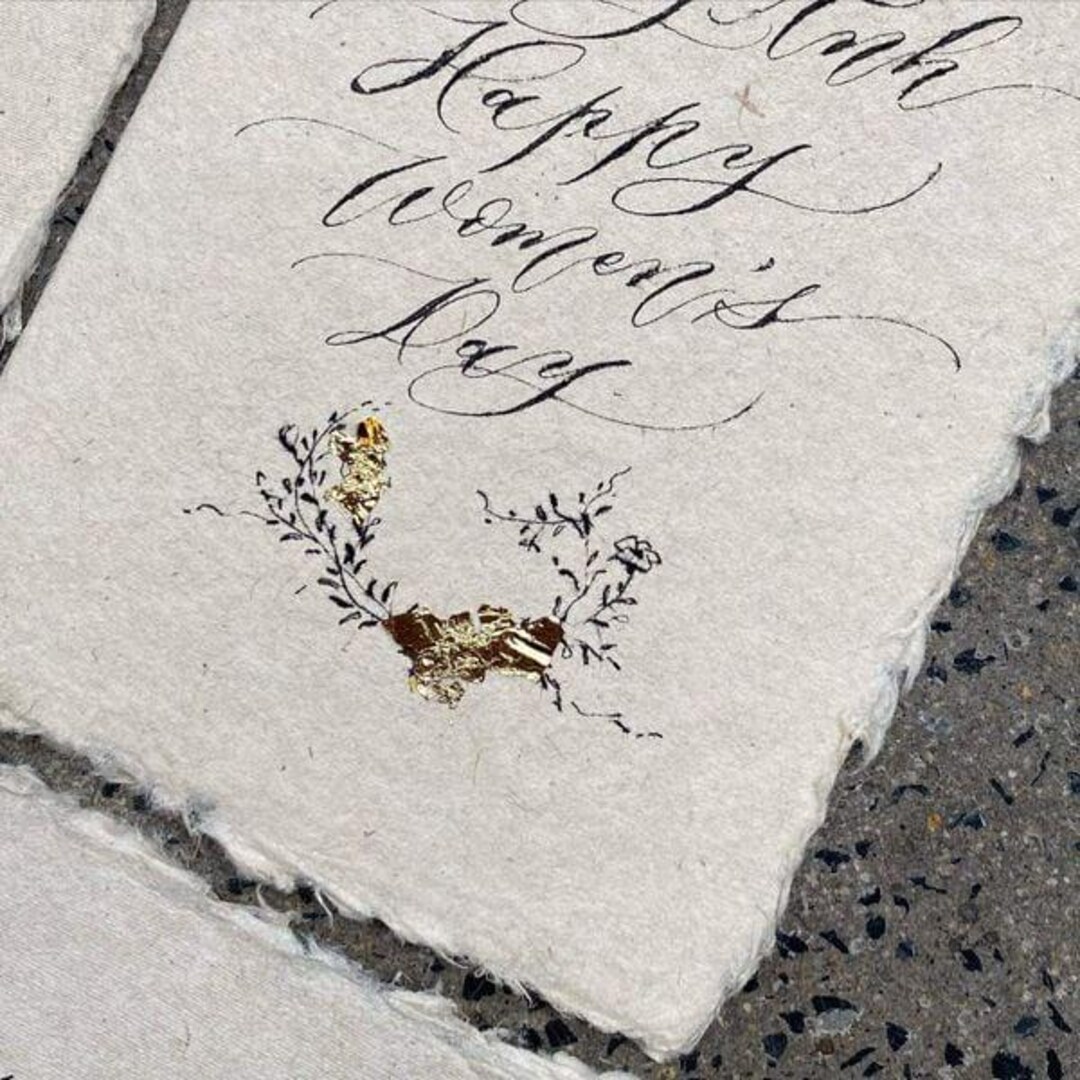 Anh
Happy
Women's
Day